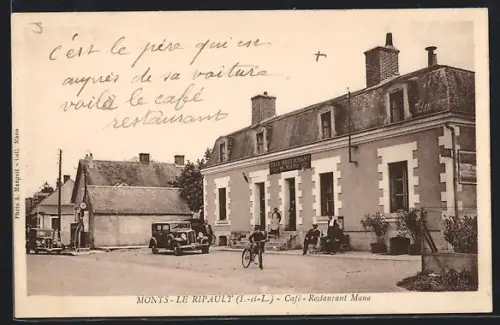 c'est le père qui est
auprès de sa voiture
voilà le café
restaurant
Photo A. Maupuit - Coll. Mano
MONTS - LE RIPAULT (I.-et-L.) - Café - Restaurant Mano